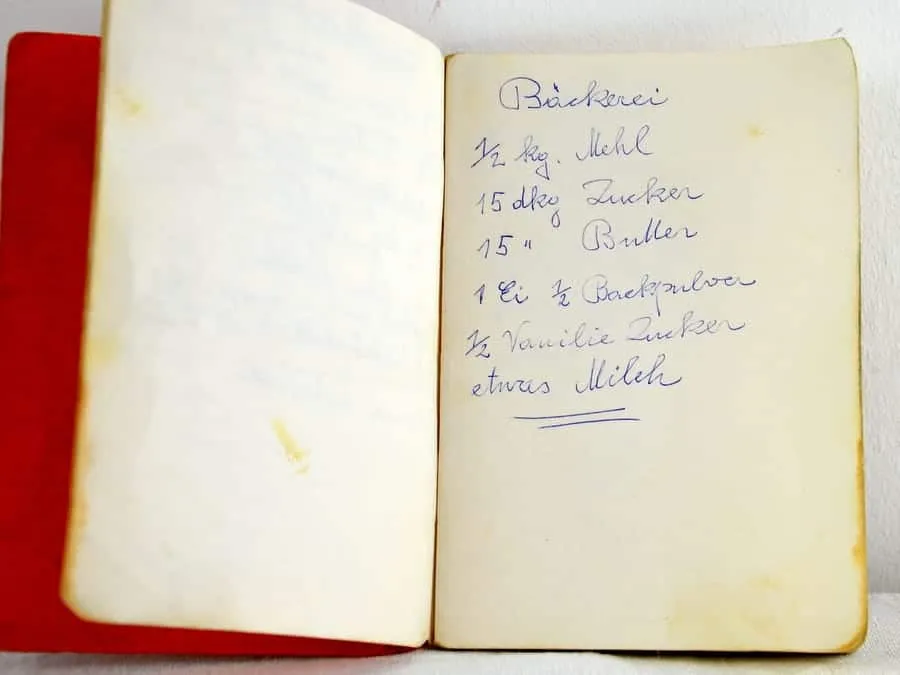 Bäckerei
1/2 kg. Mehl
15 dkg Zucker
15 " Butter
1 Ei 1/2 Backpulver
1/2 Vanilie Zucker
etwas Milch